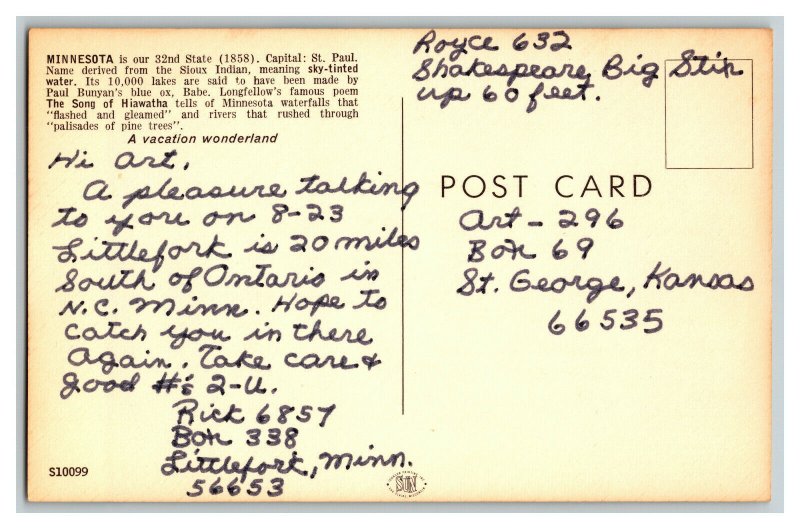 MINNESOTA is our 32nd State (1858). Capital: St. Paul.
Name derived from the Sioux Indian, meaning sky-tinted
water. Its 10,000 lakes are said to have been made by
Paul Bunyan's blue ox, Babe. Longfellow's famous poem
The Song of Hiawatha tells of Minnesota waterfalls that
"flashed and gleamed" and rivers that rushed through
"palisades of pine trees".
A vacation wonderland
Hi Art,
A pleasure talking
to you on 8-23
Littlefork is 20 miles
South of Ontario in
N.C. Minn. Hope to
catch you in there
again. Take care &
good #'s 2-U.
Rick 6857
Box 338
Littlefork, Minn.
56653
S10099
Royce 632
Shakespeare Big Stix
up 60 feet.
POST CARD
Art - 296
Box 69
St. George, Kansas
66535
SUN